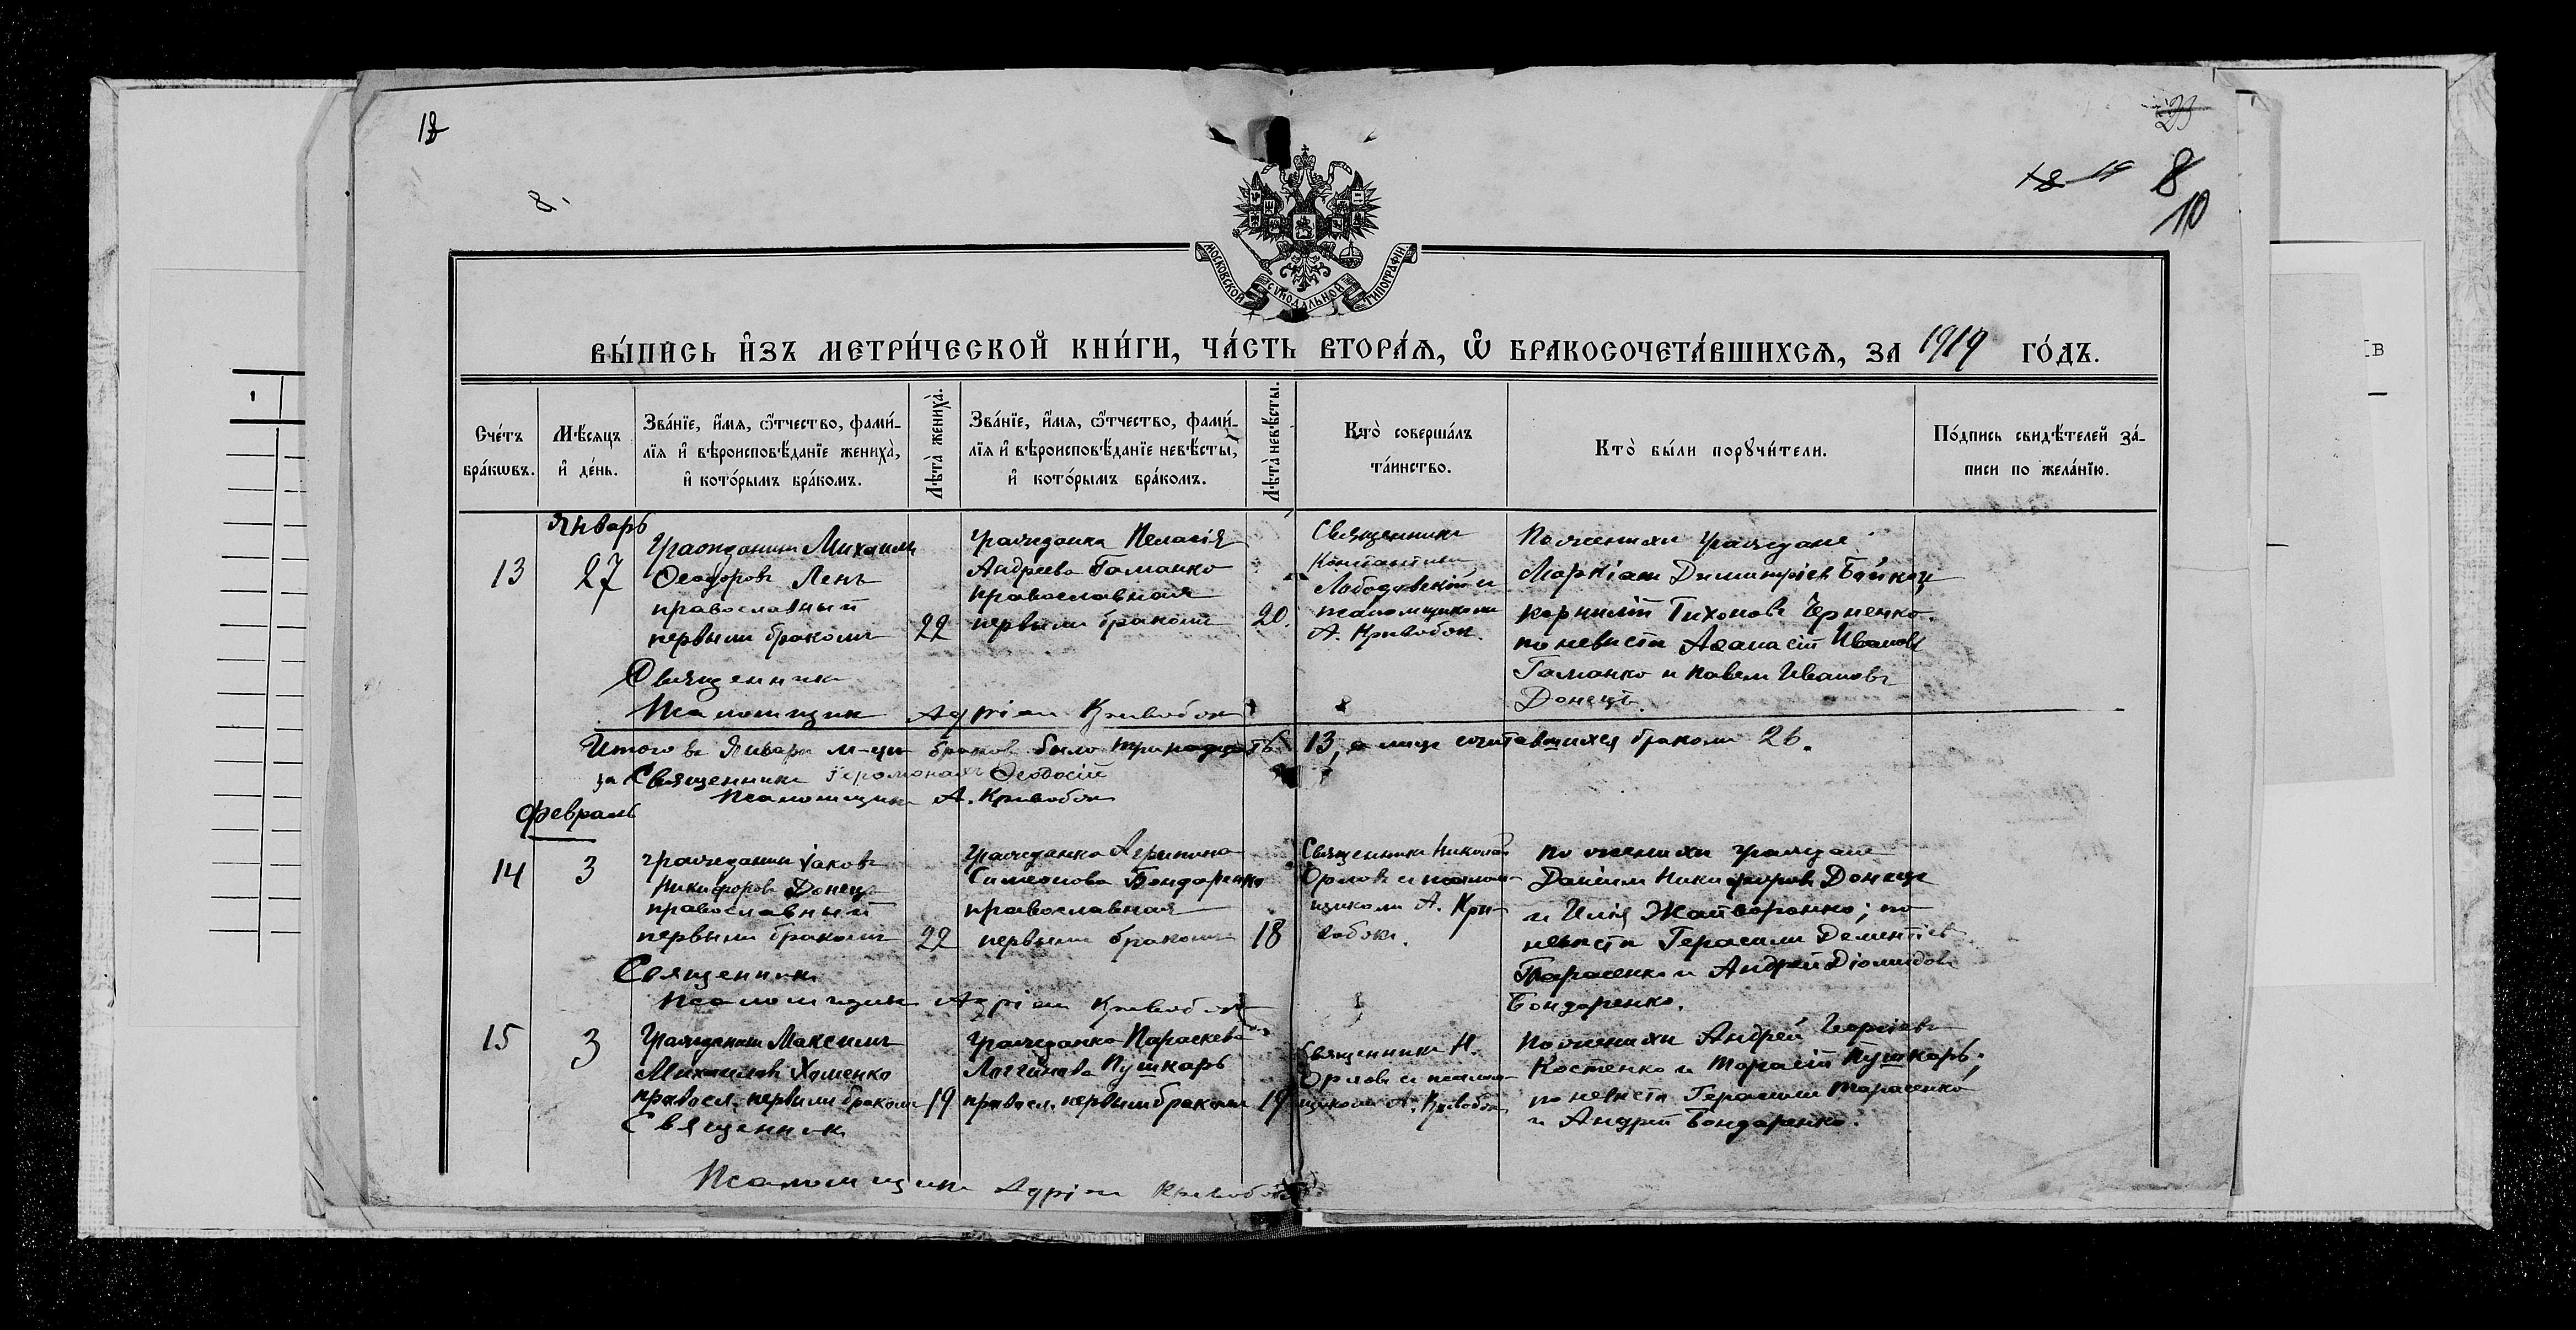 18
8.
23
18 19 8
10
МОСКОВСКОЙ СѴНОДАЛЬНОЙ ТИПОГРАФІИ.
ВЫ́ПИСЬ И҆ЗЪ МЕТРИ́ЧЕСКОЙ КНИ́ГИ, ЧА́СТЬ ВТОРА́Ѧ, Ѽ БРАКОСОЧЕТА́ВШИХСѦ, ЗА 1919 ГО́ДЪ.
Сче́тъ бра́кѡвъ.
Мѣ́сяцъ и҆ де́нь.
Зва́нїе, и҆́мя, ѻ҆́тчество, фами́-
лїя и҆ вѣроисповѣ́данїе жениха̀,
и҆ кото́рымъ бра́комъ.
Лѣта̀ жениха̀.
Зва́нїе, и҆́мя, ѻ҆́тчество, фами́-
лїя и҆ вѣроисповѣ́данїе невѣ́сты,
и҆ кото́рымъ бра́комъ.
Лѣта̀ невѣ́сты.
Кто̀ соверша́лъ
та́инство.
Кто̀ бы́ли порꙋчи́тели.
По́дпись свидѣ́телей за́-
писи по жела́нїю.
Январь
13
27
Гражданинъ Михаилъ
Ѳеодоровъ Ленъ
православный
первымъ бракомъ
22
Гражданка Пелагія
Андреева Гаманко
православная
первымъ бракомъ
20.
Священникъ
Константинъ
Лободовскій съ
псаломщикомъ
А. Кривобок.
По женихѣ граждане:
Маркіанъ Димитріевъ Бойко и
Корнилій Тихоновъ Черненко.
по невѣстѣ Аѳанасій Ивановъ
Гаманко и Павелъ Ивановъ
Донецъ.
Священникъ
Псаломщикъ Адріан Кривобок
Итого въ Январѣ м-цѣ браковъ было тринадцать 13, а лицъ сочитавшихся бракомъ 26.
за Священника Іеромонахъ Ѳеодосій
Псаломщикъ А. Кривобок
Февраль
14
3
гражданинъ Іаковъ
Никифоровъ Донецъ
православный
первымъ бракомъ
22
Гражданка Агрипина
Симеонова Бондаренко
православная
первымъ бракомъ
18
Священникъ Николай
Орловъ съ псалом-
щикомъ А. Кри-
вобокъ.
по женихѣ граждане
Даніилъ Никифоровъ Донецъ
и Илія Жайворонко; по
невѣстѣ Герасимъ Дементіевъ
Тарасенко и Андрей Діомидовъ
Бондаренко.
Священникъ
Псаломщикъ Адріан Кривобок
15
3
Гражданинъ Максимъ
Михаиловъ Хоменко
правосл. первымъ бракомъ
19
Гражданка Параскева
Логгинова Пушкарь
правосл. первымъ бракомъ
19
Священникъ Н.
Орловъ съ псалом-
щикомъ А. Кривобок
По женихѣ Андрей Георгіевъ
Костенко и Тарасій Пушкарь;
по невѣстѣ Герасимъ Тарасенко
и Андрей Бондаренко.
Священникъ
Псаломщикъ Адріан Кривобок